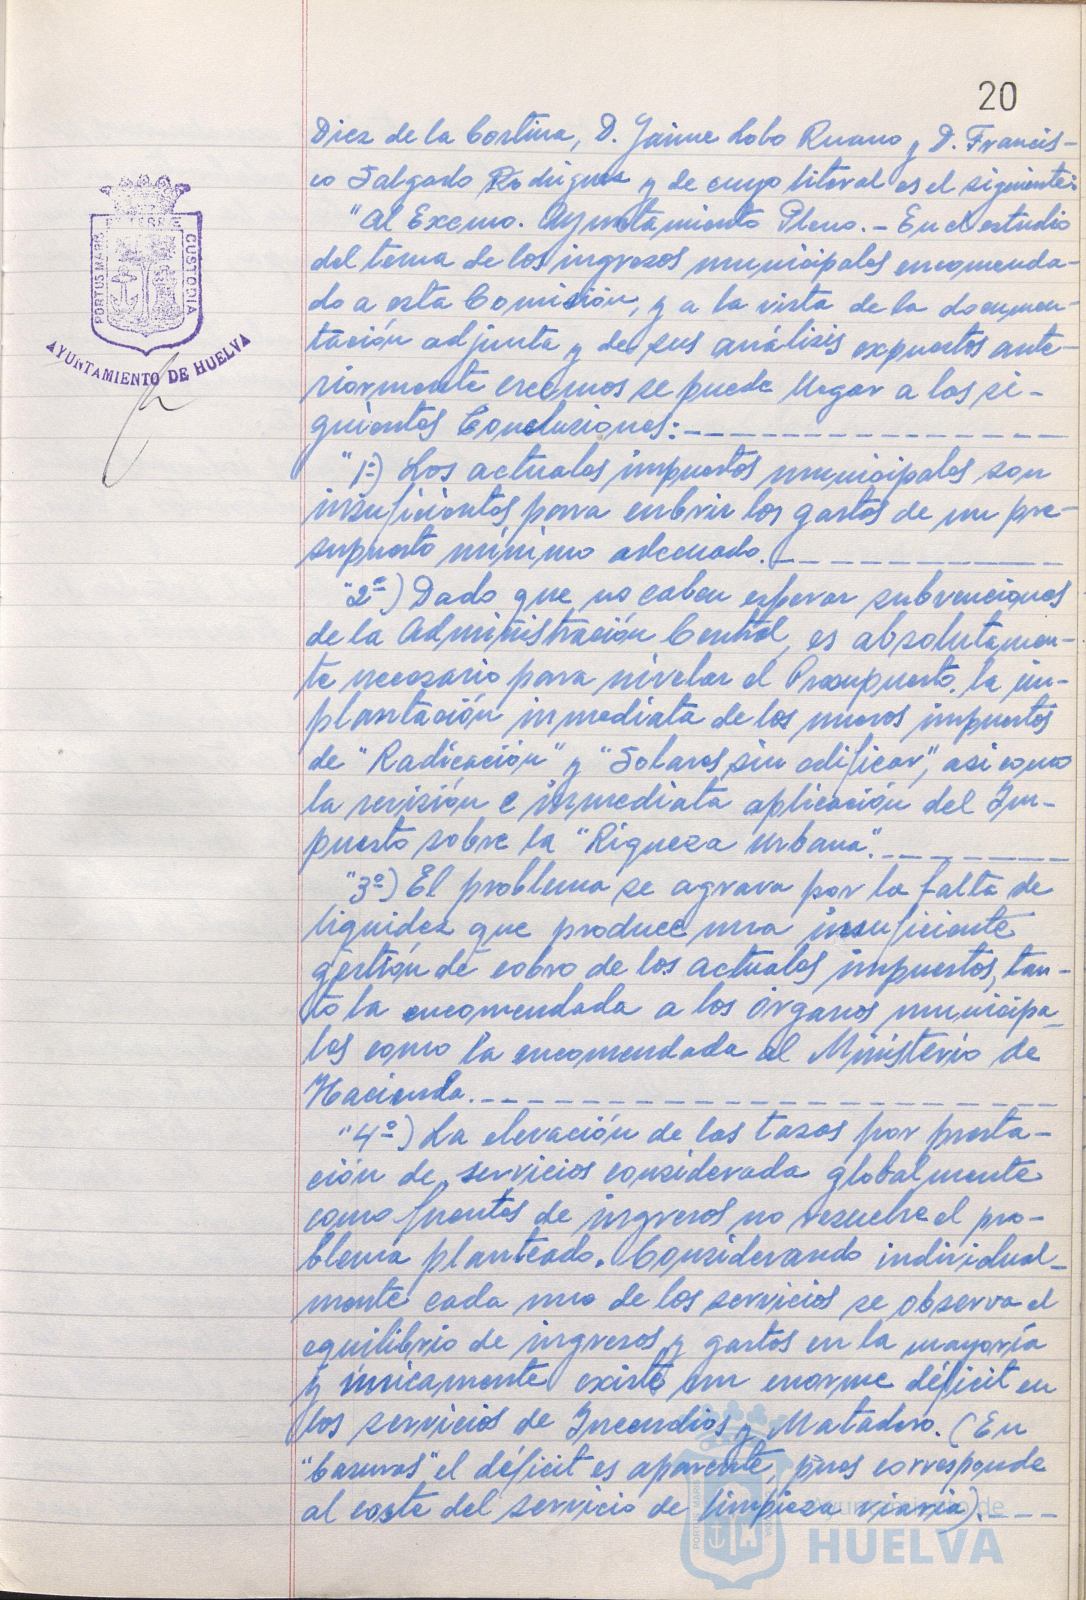 20
Diez de la Cortina, D. Jaime Lobo Ruano y D. Francis-
co Salgado Rodríguez y de cuyo literal es el siguiente:
"Al Excmo. Ayuntamiento Pleno.- En el estudio
del tema de los ingresos municipales encomenda-
do a esta Comisión, y a la vista de la documen-
tación adjunta y de sus análisis expuestos ante-
riormente creemos se puede llegar a las si-
guientes Conclusiones:
"1º) Los actuales impuestos municipales son
insuficientes para cubrir los gastos de un pre-
supuesto mínimo adecuado.
"2º) Dado que no caben esperar subvenciones
de la Administración Central, es absolutamen-
te necesario para nivelar el Presupuesto, la im-
plantación inmediata de los nuevos impuestos
de "Radicación" y "Solares sin edificar", asi como
la revisión e inmediata aplicación del Im-
puesto sobre la "Riqueza Urbana".
"3º) El problema se agrava por la falta de
liquidez que produce una insuficiente
gestión de cobro de los actuales impuestos, tan-
to la encomendada a los órganos municipa-
les como la encomendada al Ministerio de
Hacienda.
"4º) La elevación de las tasas por presta-
ción de servicios considerada globalmente
como fuentes de ingresos no resuelve el pro-
blema planteado. Considerando individual-
mente cada uno de los servicios se observa el
equilibrio de ingresos y gastos en la mayoría
y únicamente existe un enorme déficit en
los servicios de Incendios y Matadero. (En
"Basuras" el déficit es aparente pues corresponde
al coste del servicio de limpieza viaria).
PORTUS MARIS
ET TERRE
CUSTODIA
AYUNTAMIENTO DE HUELVA
Ayuntamiento de
HUELVA